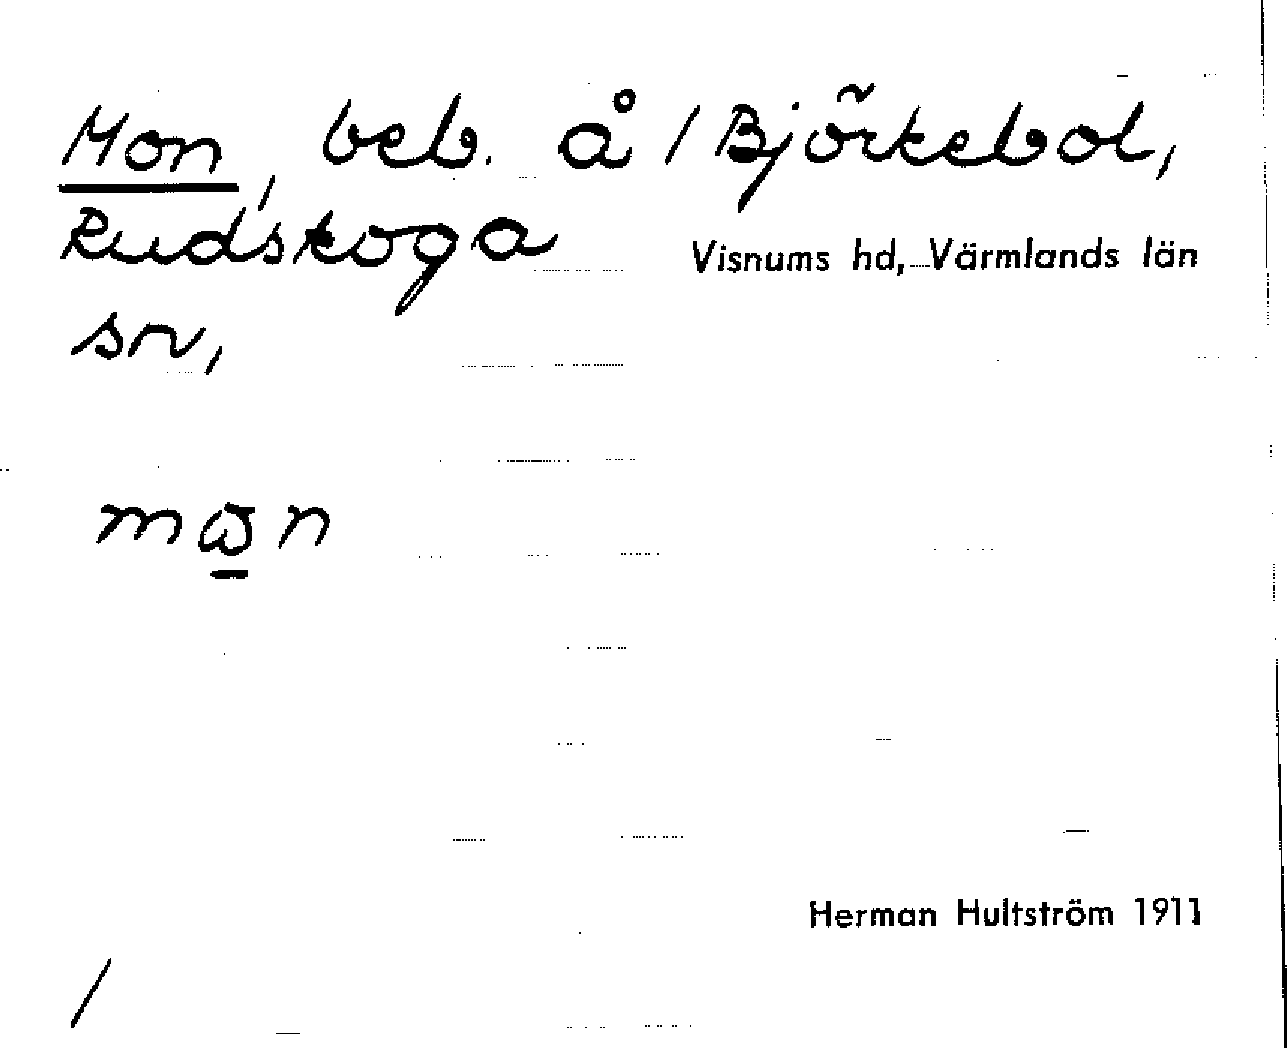 Mon, beb. å / Björkebol,
Rudskoga Visnums hd, Värmlands län
sn,
Herman Hultström 1911
/